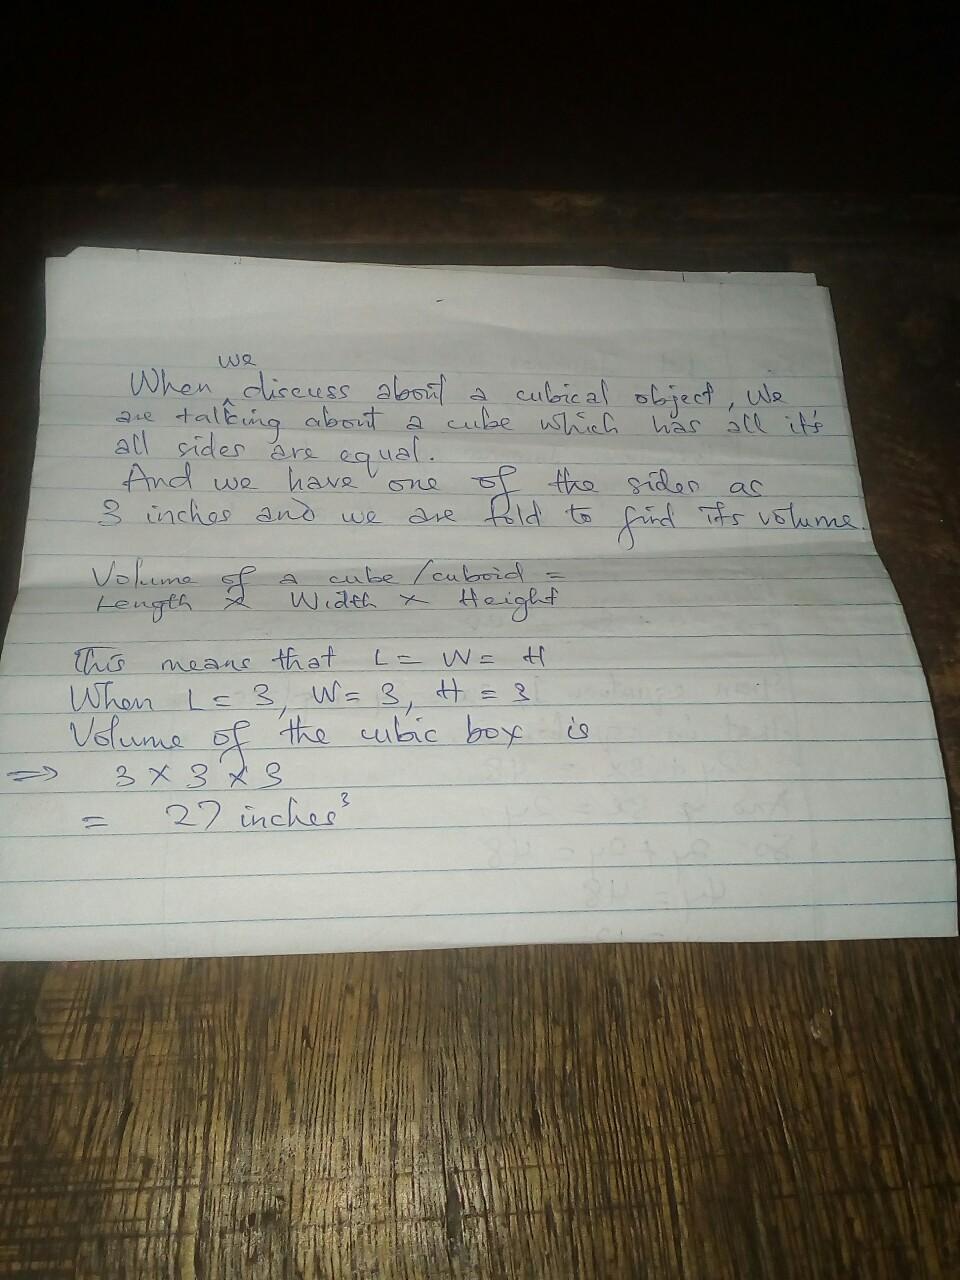 we
When discuss about a cubical object, We
are talking about a cube which has all it's
all sides are equal.
And we have one of the sides as
3 inches and we are told to find its volume.
Volume of a cube/cuboid =
Length x Width x Height
This means that L = W = H
When L = 3, W = 3, H = 3
Volume of the cubic box is
=> 3 x 3 x 3
= 27 inches³